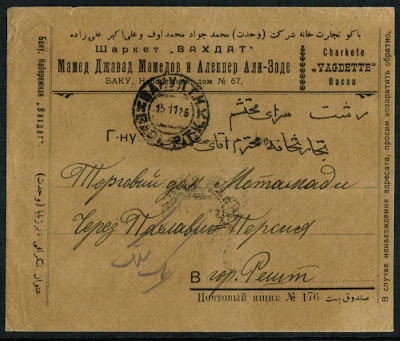 باکو تجارت خانه شرکت (وحدت) محمد جواد محمد اوف و علی اکبر علی زاده
Шаркет „ВАХДАТ"
Мамед Джавад Мамедов и Алекпер Али-Заде
БАКУ, Набережная дом № 67.
Charkete
"VAGDETTE"
Bacou
15 11 26
رشت سرای محتشم
Г-ну
تجارتخانه محترم آقای
Торговый дом Мотамади
Через Пахлави Персия
В гор. Решт
Почтовый ящик № 176 صندوق پست
Баку, набережная „Вахдат"
В случае ненахождения адресата, просим возвратить обратно.